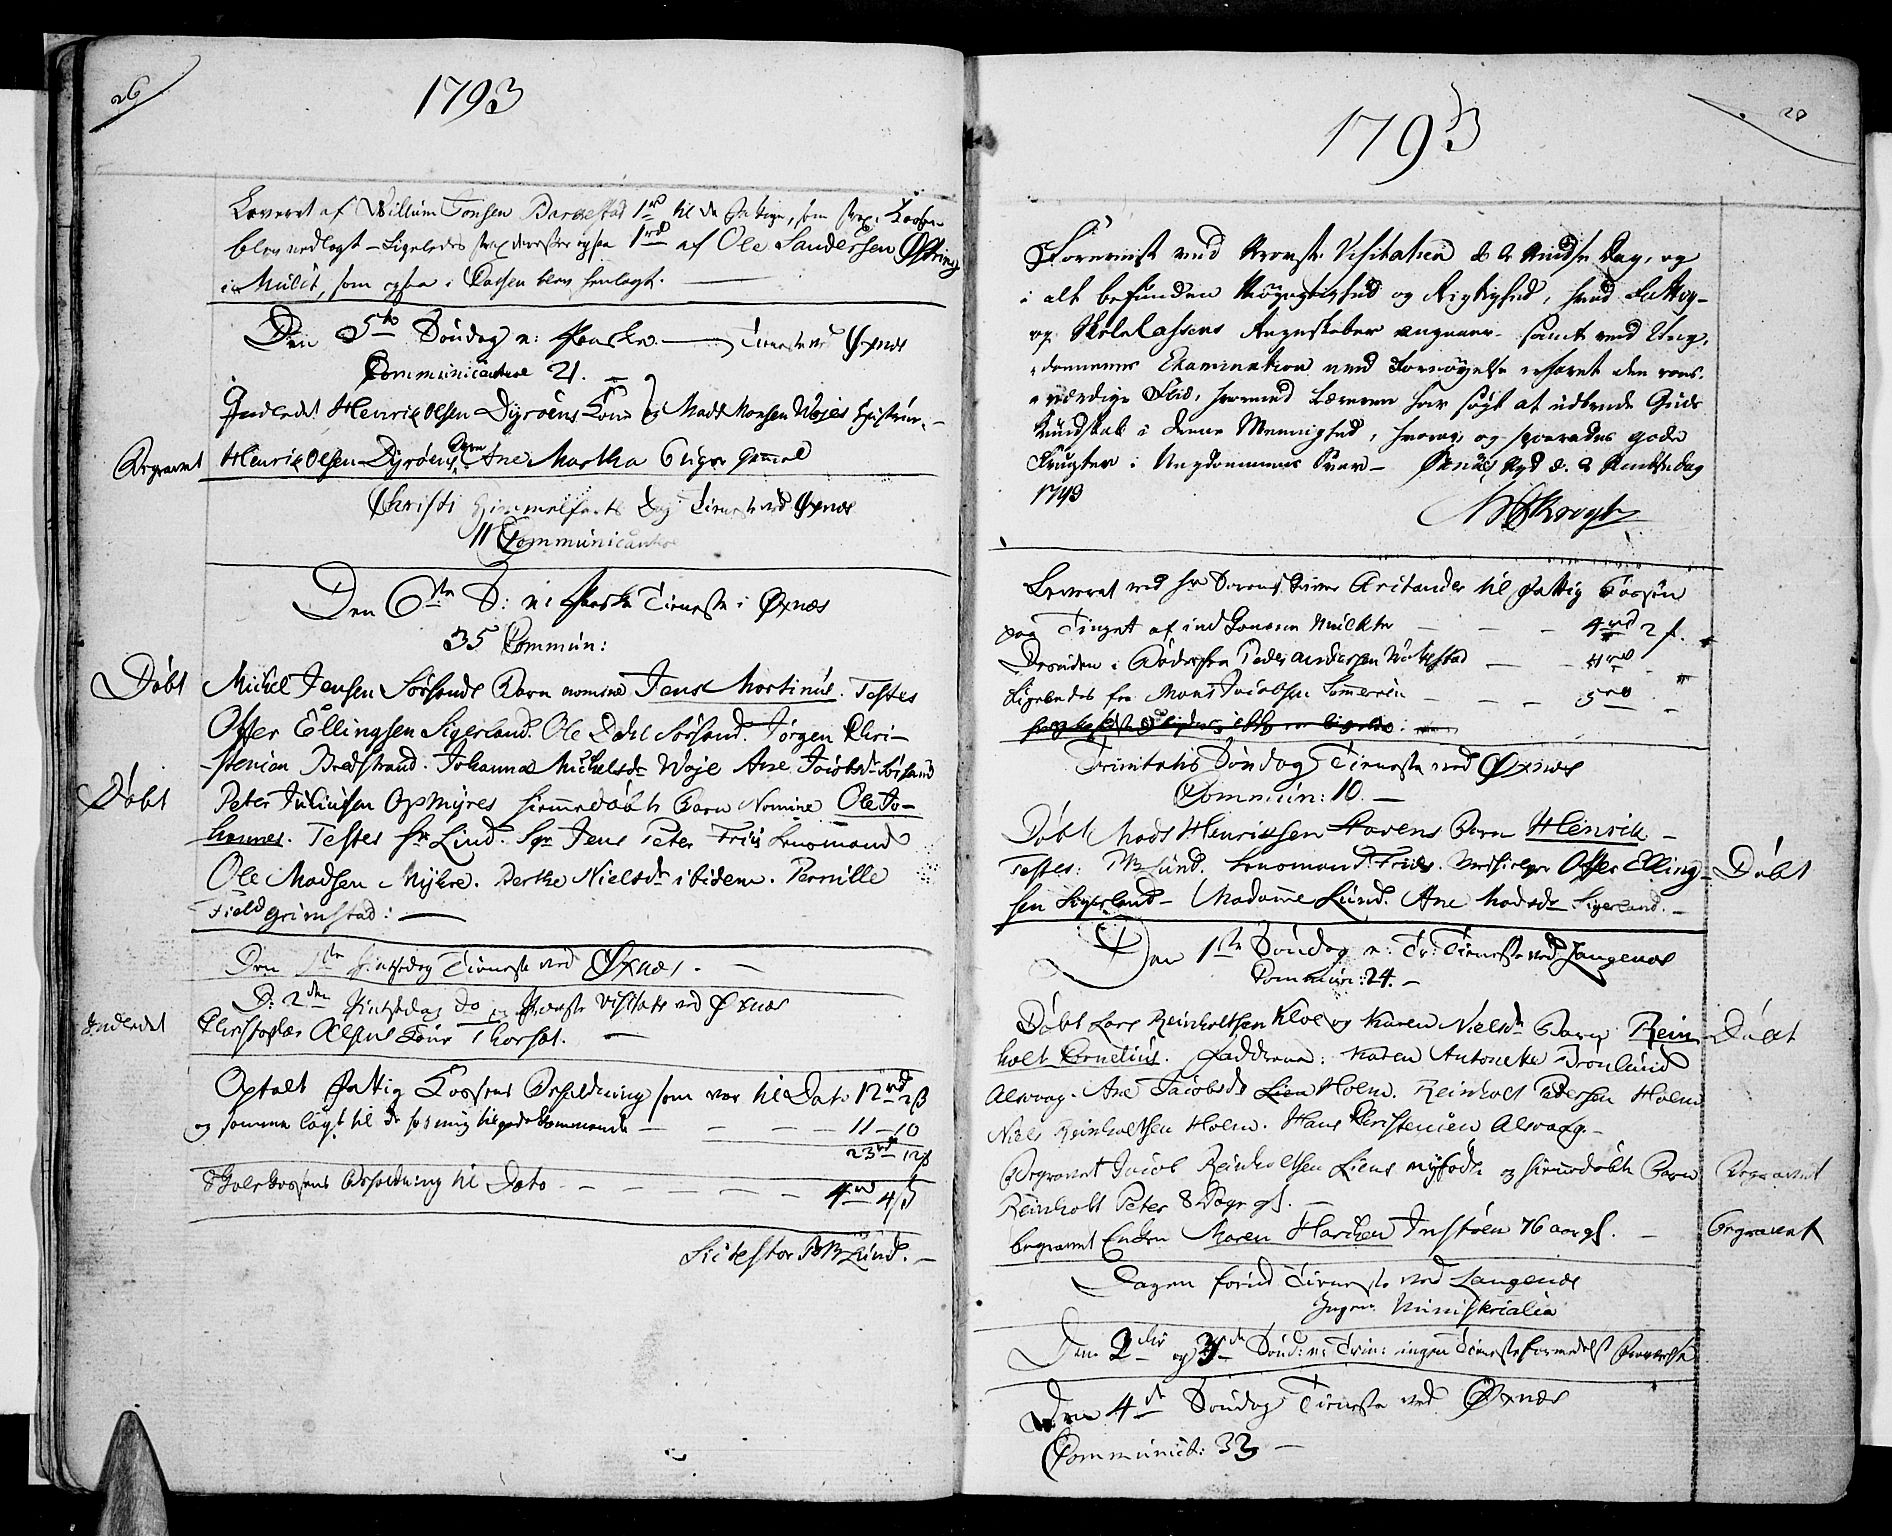 26
1793
Leveret af Willum Jonsen Barkestad 1 rd til de fattige, som strax i Kassen
blev nedlagt - Ligeledes strax derefter ogsaa 1 rd af Ole Sandersen
i Mulct, som ogsaa i Cassen blev henlagt.
Den 5te Søndag e: Paaske Tieneste ved Øxnæs
Communicantere 21.
Indledet Henrik Olsen Dyrøens Kone og Mads Monsen Wojes Hustrue.
Begravet Henrik Olsen Dyrøens Barn Ane Martha 6 Uger gammel
Christi Himmelfarts Dag Tieneste ved Øxnæs
11 Communicantere
Den 6te S: e: Paaske Tieneste i Øxnæs
35 Commun:
Døbt Michel Jensen Sørsands Barn nomine Jens Mortinus. Testes
Offer Ellingsen Sigerland. Ole Dahl Sørsand. Jørgen Chri-
stenian Bredstrand. Johanna Michelsdr Woje Ane Jacobsdr Sørsand
Døbt Peter Juliusen Opmyres hiemmedøbte Barn Nomine Ole Jo-
hannes. Testes Hr Lind. Sgr Jens Peter Friis Lensmand
Ole Madsen Nykre. Berthe Nielsdr ibidem. Pernille
Field Grimstad:
Den 1ste Pintsedag Tieneste ved Øxnæs.
D: 2den Pintsedag do og Provste Visitats ved Øxnæs
Indledet Christopher Olsens Kone Thorset.
Optalt Fattig Cassens Beholdning som var til Dato 12 rd 2 ß
og samme lagt til de hos mig tilgodekommende 11 - 10
23 rd 12 ß
Skolekassens Beholdning til Dato 4 rd 4 ß
28
1793
Foreviist ved Provste Visitatien d: 2 Pindse Dag, og
i alt befunden Nøyagtighed og Rigtighed, hvad Fattig-
og Skole Cassens Regnskaber angaaer - samt ved Ung-
dommens Examination med Fornøyelse erfaret den roes-
værdige Fliid, hvormed Læreren har søgt at udbrede Guds
Kundskab i denne Menighed, hvorag og sporedes gode
Frugter i Ungdommens Svar - Øxnæs Kgd d. 2 Pintsedag
1793
Leveret ved Hr Sorenskriver Aritander til Fattig Cassen
paa Tinget af ind Mulkter 4 rd 2 ß.
Desuden i fra Peder Andersen 4 rd
Ligeledes fra Mons Jacobsen 5 rd
Trinitatis Søndag Tieneste ved Øxnæs
Commun: 10.
Døbt Mads Henriksen Havens Barn Henrik
Testes: Lund. Lensmand Friis. Offer Elling- Døbt
sen Sigerland - Madame Lund. Ane Madsdr Sigerland.
Den 1ste Søndag e: Tr: Tieneste ved Langenæs
Commun: 24.
Døbt Lars Reinholtsen Kloe og Karen Nielsdr Barn Rein- Døbt
holt Cornelius. Fadderne: Karen Antonette Bronlund
Alsvaag. Ane Jacobsdr Lien Holm. Reinholt Pedersen Holm
Niels Reinholtsen Holm. Hans Christenien Alsvaag.
Begravet Jacob Reinholtsen Liens nyfødte og hiemmedøbte Barn Begravet
Reinholt Peter 8 Dage gl.
begravet Enken Maren Instøen 76 aar gl. begravet
Dagen forud Tieneste ved Langenæs
Ingen Ministerialia
Den 2den og 3de Sønd: e: Trin: ingen Tieneste formedelst
Den 4de Søndag Tieneste ved Øxnæs
Communict: 33